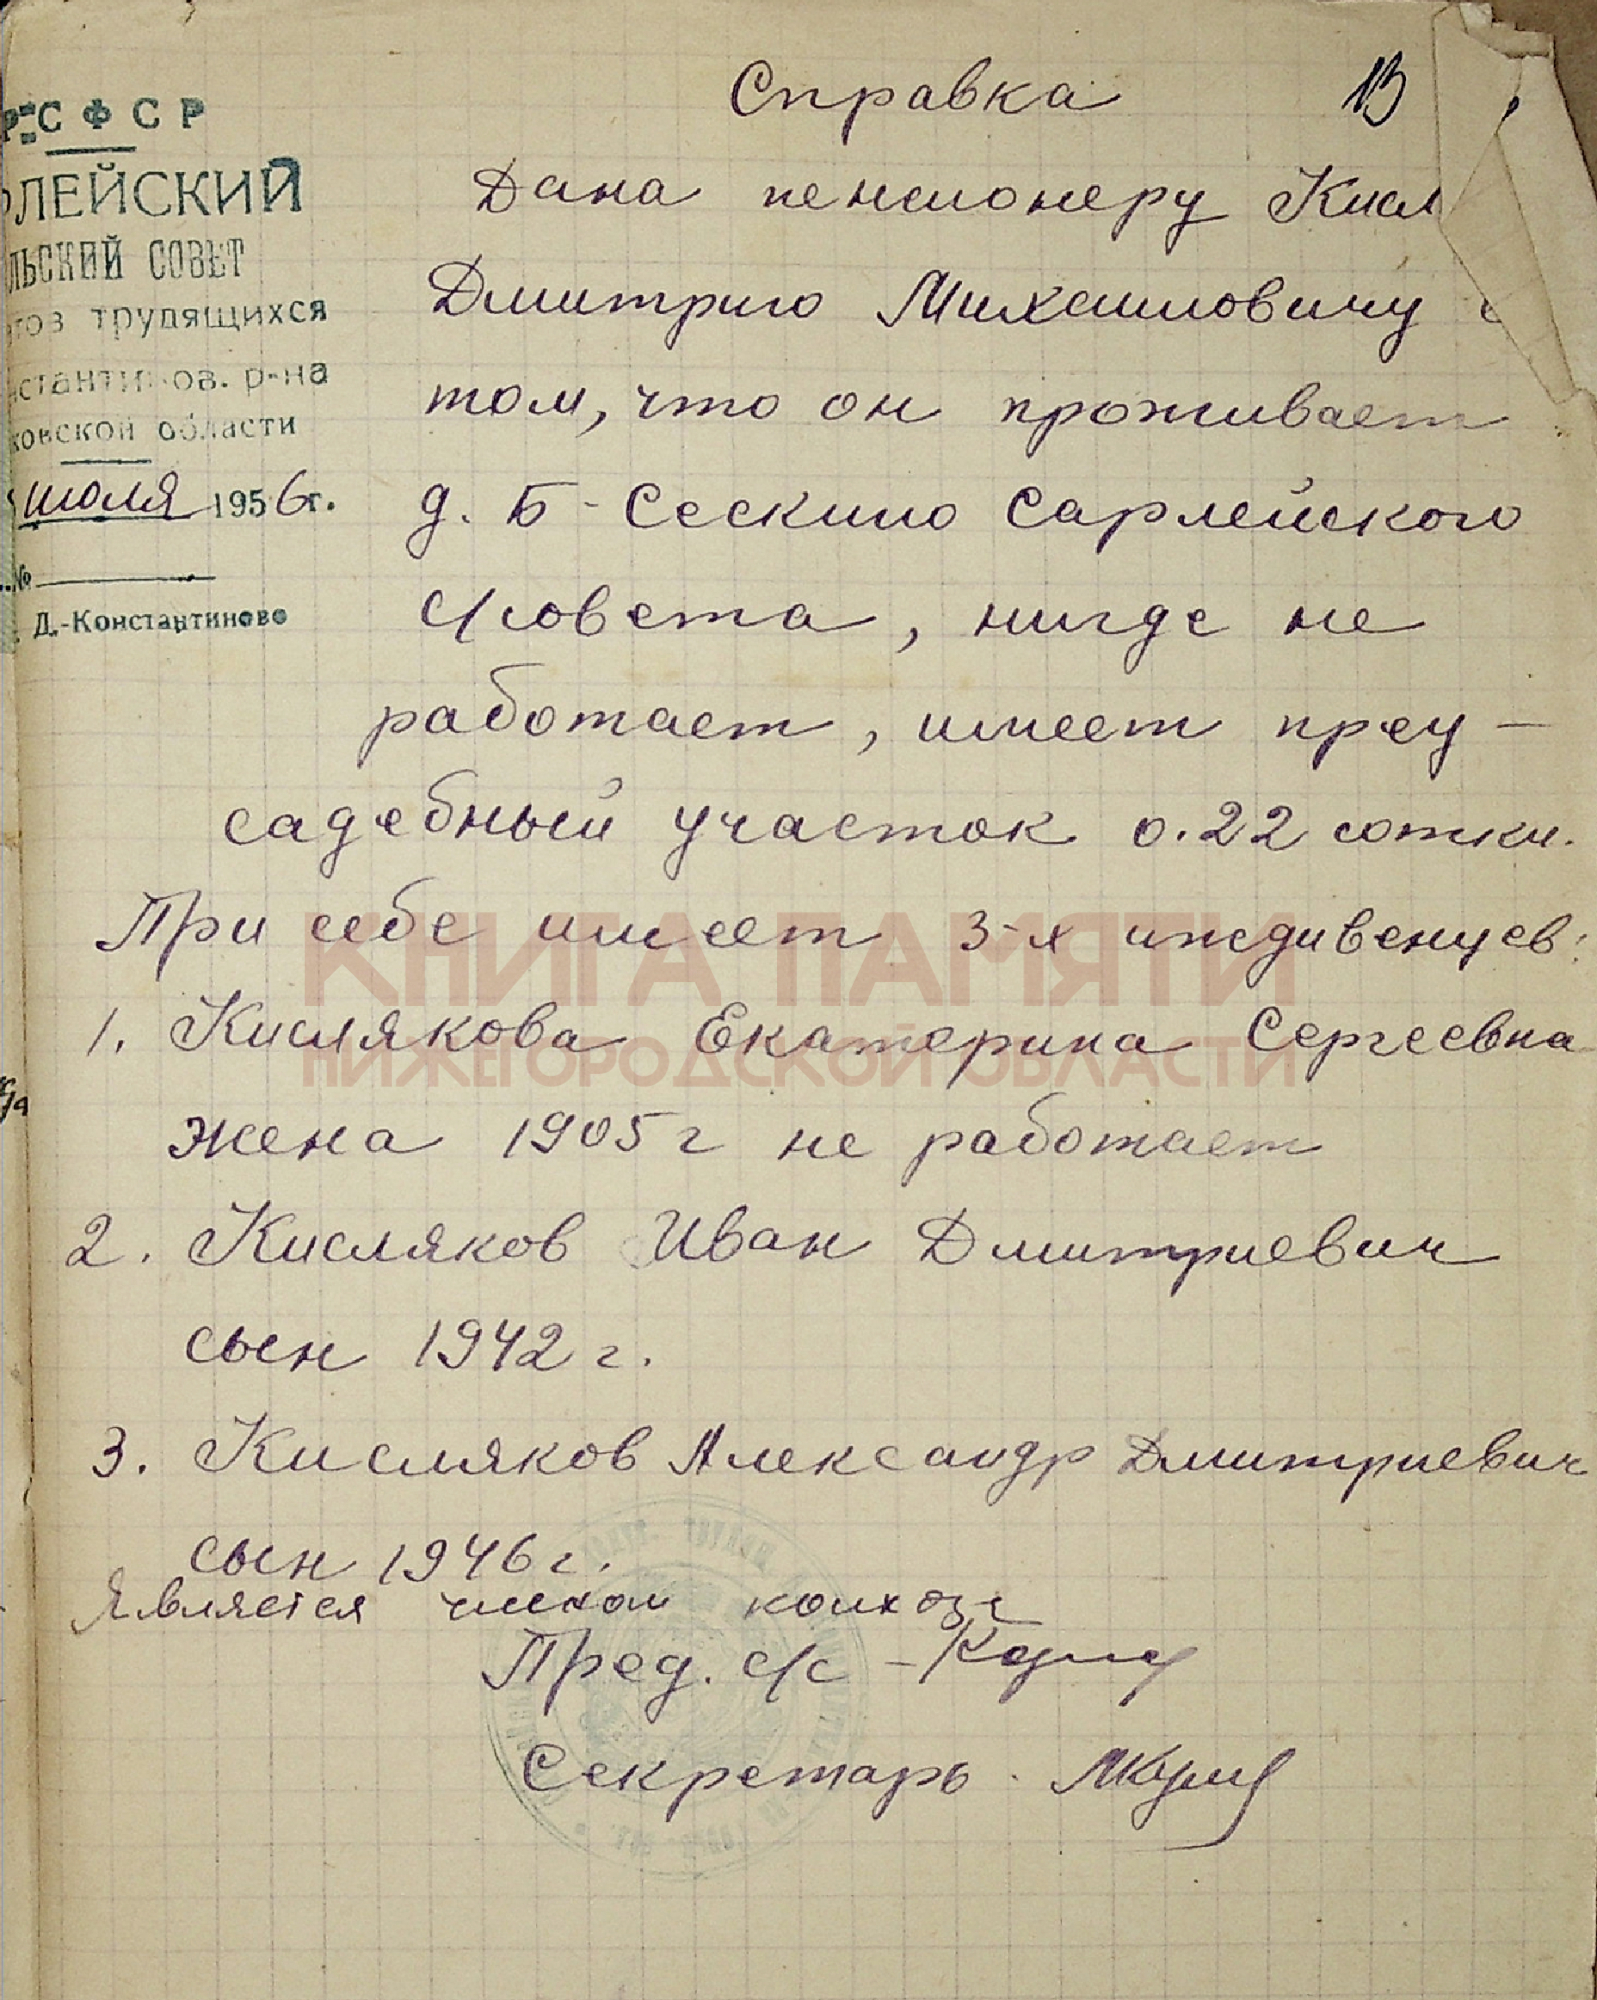 РСФСР
РЛЕЙСКИЙ
ЛЬСКИЙ СОВЕТ
тов трудящихся
нстантинов. р-на
ковской области
июля 1956г.
№
Д.-Константиново
Справка
13
Дана пенсионеру Кисл
Дмитрию Михайловичу в
том, что он проживает
д. Б-Сескино Сарлейского
с/совета, нигде не
работает, имеет преу-
садебный участок 0.22 сотки.
При себе имеет 3-х иждивенцев:
1. Кислякова Екатерина Сергеевна
жена 1905г не работает
2. Кисляков Иван Дмитриевич
сын 1942 г.
3. Кисляков Александр Дмитриевич
сын 1946 г.
Является членом колхоза
Пред. с/с -
Секретарь.
КНИГА ПАМЯТИ
НИЖЕГОРОДСКОЙ ОБЛАСТИ